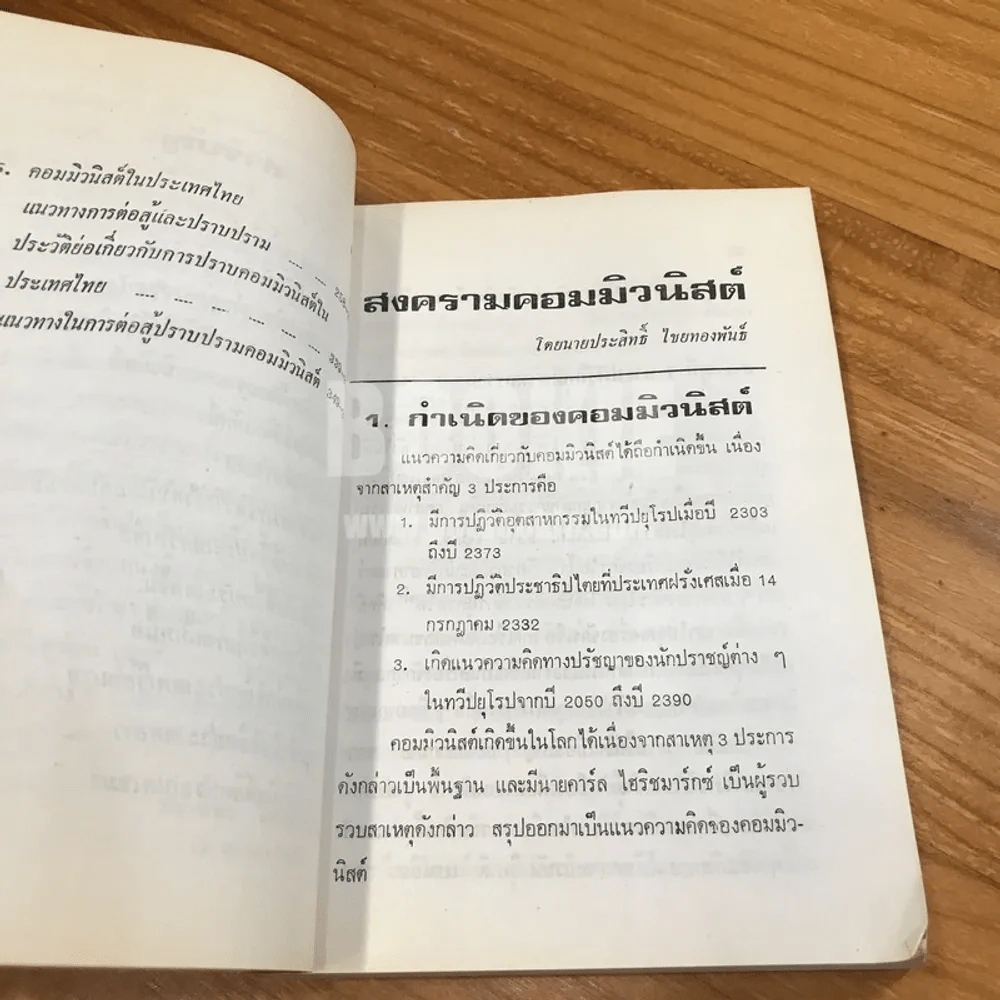 คอมมิวนิสต์ในประเทศไทย
แนวทางการต่อสู้และปราบปราม .... ....
ประวัติย่อเกี่ยวกับการปราบคอมมิวนิสต์ใน
ประเทศไทย .... .... .... .... ....
แนวทางในการต่อสู้ปราบปรามคอมมิวนิสต์
สงครามคอมมิวนิสต์
โดยนายประสิทธิ์ ไชยทองพันธ์
1. กำเนิดของคอมมิวนิสต์
แนวความคิดเกี่ยวกับคอมมิวนิสต์ได้ถือกำเนิดขึ้น เนื่อง
จากสาเหตุสำคัญ 3 ประการคือ
1. มีการปฏิวัติอุตสาหกรรมในทวีปยุโรปเมื่อปี 2303
ถึงปี 2373
2. มีการปฏิวัติประชาธิปไตยที่ประเทศฝรั่งเศสเมื่อ 14
กรกฎาคม 2332
3. เกิดแนวความคิดทางปรัชญาของนักปราชญ์ต่าง ๆ
ในทวีปยุโรปจากปี 2050 ถึงปี 2390
คอมมิวนิสต์เกิดขึ้นในโลกได้เนื่องจากสาเหตุ 3 ประการ
ดังกล่าวเป็นพื้นฐาน และมีนายคาร์ล ไฮริชมาร์กซ์ เป็นผู้รวบ
รวบสาเหตุดังกล่าว สรุปออกมาเป็นแนวความคิดของคอมมิว-
นิสต์